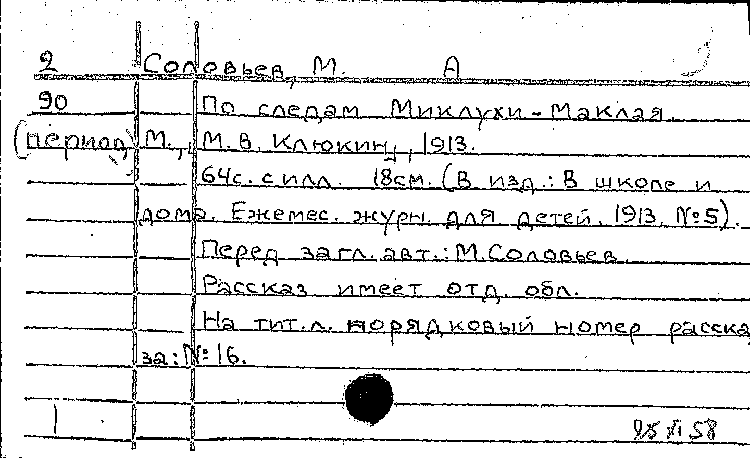 2 Соловьев, М. А
90 По следам Миклухи-Маклая.
(период) М., М.В. Клюкин, 1913.
64с. с илл. 18см. (В изд.: В школе и
дома. Ежемес. журн. для детей. 1913. №5).
Перед загл. авт.: М. Соловьев.
Рассказ имеет отд. обл.
На тит. л. порядковый номер расска
за: №16.
1 58